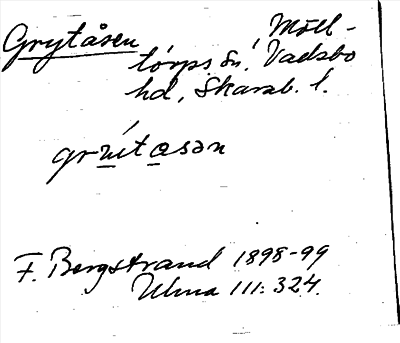 Grytåsen, Möll-
torps sn, Vadsbo
hd, Skarab. l.
grýtåsan
F. Bergstrand 1898-99
Ulma 111:324.